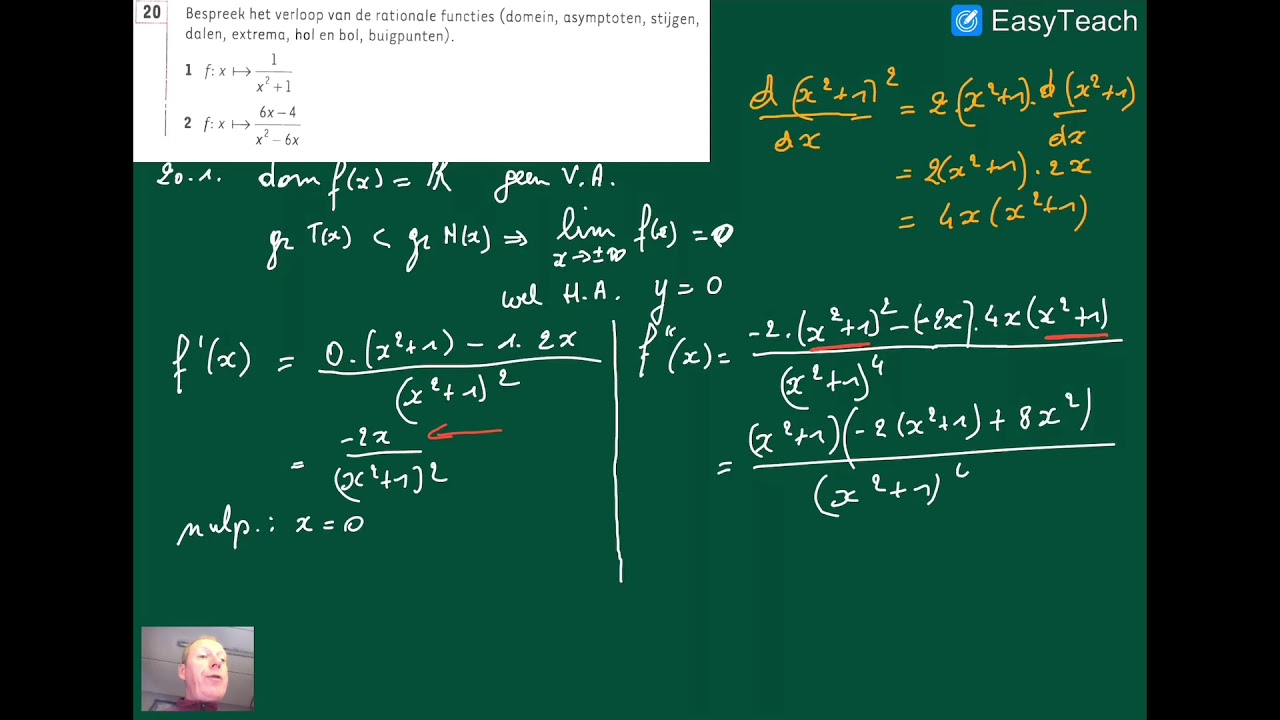 20 Bespreek het verloop van de rationale functies (domein, asymptoten, stijgen,
dalen, extrema, hol en bol, buigpunten).
1 f: x ↦ 1/(x² + 1)
2 f: x ↦ (6x − 4)/(x² − 6x)
EasyTeach
d(x²+1)²/dx = 2·(x²+1)·d(x²+1)/dx
= 2(x²+1)·2x
= 4x(x²+1)
20.1. dom f(x) = ℝ geen V.A.
gr T(x) < gr N(x) ⇒ lim x→±∞ f(x) = 0
wel H.A. y = 0
f'(x) = (0·(x²+1) − 1·2x)/(x²+1)²
= −2x/(x²+1)²
nulp.: x = 0
f''(x) = (−2·(x²+1)² − (−2x)·4x(x²+1))/(x²+1)⁴
= (x²+1)(−2(x²+1) + 8x²)/(x²+1)